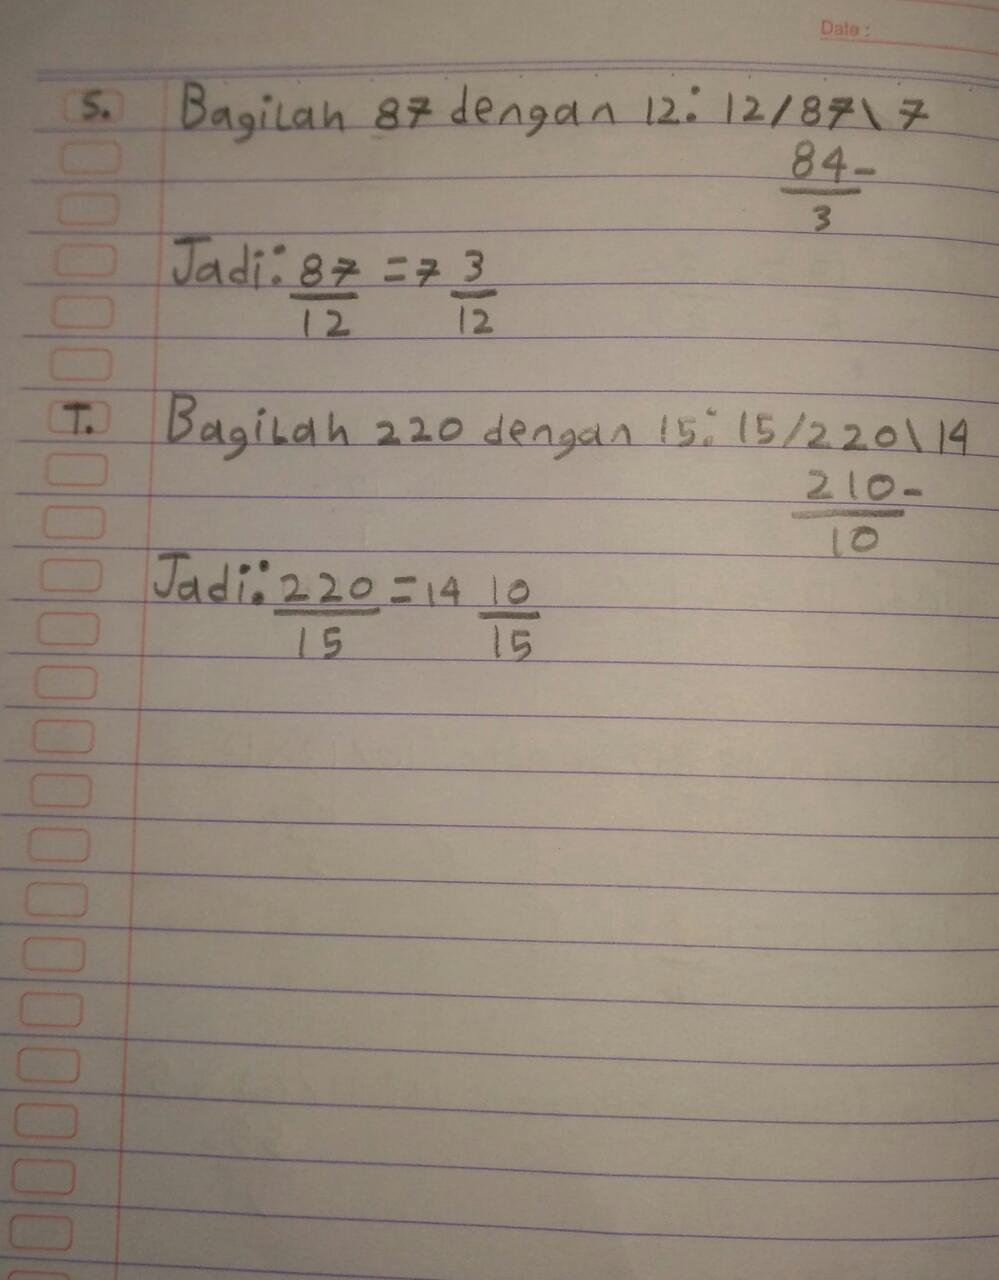 Date :
S. Bagilah 87 dengan 12: 12/87\7
84-
3
Jadi: 87/12 = 7 3/12
T. Bagilah 220 dengan 15: 15/220\14
210-
10
Jadi: 220/15 = 14 10/15